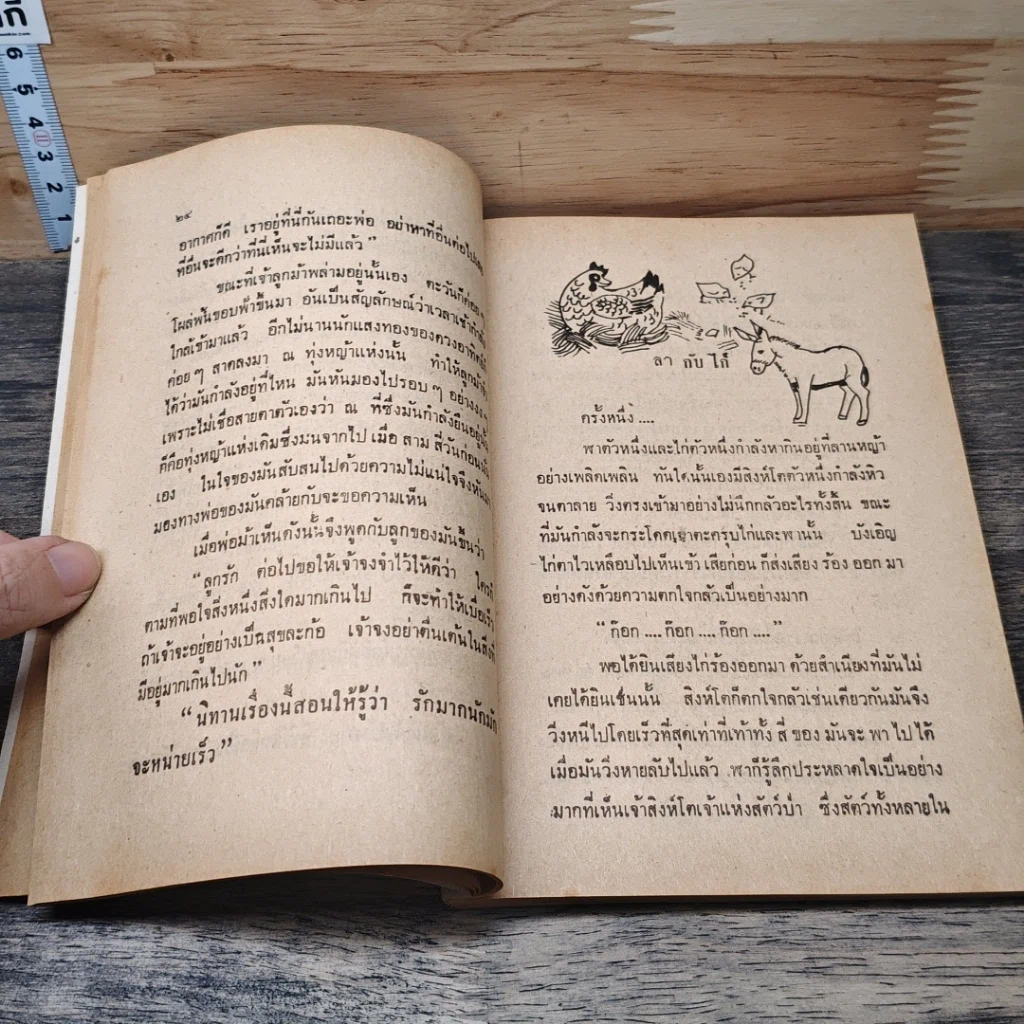 6
5
4
3
2
1
๒๔
อากาศก็ดี เราอยู่ที่นี่กันเถอะพ่อ อย่าหาที่อื่นต่อไปเลย
ที่อื่นจะดีกว่าที่นี่เห็นจะไม่มีแล้ว”
ขณะที่เจ้าลูกม้าพล่ามอยู่นั้นเอง ตะวันก็ค่อย
โผล่พ้นขอบฟ้าขึ้นมา อันเป็นสัญลักษณ์ว่าเวลาเช้า
ใกล้เข้ามาแล้ว อีกไม่นานนักแสงทองของดวงอาทิตย์ก็
ค่อย ๆ สาดลงมา ณ ทุ่งหญ้าแห่งนั้น ทำให้ลูกม้า
ได้ว่ามันกำลังอยู่ที่ไหน มันหันมองไปรอบ ๆ อย่าง
เพราะไม่เชื่อสายตาตัวเองว่า ณ ที่ซึ่งมันกำลังยืนอยู่นั้น
ก็คือทุ่งหญ้าแห่งเดิมซึ่งมันจากไป เมื่อ สาม สี่วันก่อน
เอง ในใจของมันสับสนไปด้วยความไม่แน่ใจจึงหัน
มองทางพ่อของมันคล้ายกับจะขอความเห็น
เมื่อพ่อม้าเห็นดังนั้นจึงพูดกับลูกของมันขึ้นว่า
“ลูกรัก ต่อไปขอให้เจ้าจงจำไว้ให้ดีว่า ใคร
ตามที่พอใจสิ่งหนึ่งสิ่งใดมากเกินไป ก็จะทำให้เบื่อเร็ว
ถ้าเจ้าจะอยู่อย่างเป็นสุขละก้อ เจ้าจงอย่าตื่นเต้นในสิ่งที่
มีอยู่มากเกินไปนัก”
“นิทานเรื่องนี้สอนให้รู้ว่า รักมากนักมัก
จะหน่ายเร็ว”
ลา กับ ไก่
ครั้งหนึ่ง ....
ฬาตัวหนึ่งและไก่ตัวหนึ่งกำลังหากินอยู่ที่ลานหญ้า
อย่างเพลิดเพลิน ทันใดนั้นเองมีสิงห์โตตัวหนึ่งกำลังหิว
จนตาลาย วิ่งตรงเข้ามาอย่างไม่นึกกลัวอะไรทั้งสิ้น ขณะ
ที่มันกำลังจะกระโดดเข้าตะครุบไก่และฬานั้น บังเอิญ
ไก่ตาไวเหลือบไปเห็นเข้า เสียก่อน ก็ส่งเสียง ร้อง ออก มา
อย่างดังด้วยความตกใจกลัวเป็นอย่างมาก
“ ก๊อก .... ก๊อก .... ก๊อก .... ”
พอได้ยินเสียงไก่ร้องออกมา ด้วยสำเนียงที่มันไม่
เคยได้ยินเช่นนั้น สิงห์โตก็ตกใจกลัวเช่นเดียวกันมันจึง
วิ่งหนีไปโดยเร็วที่สุดเท่าที่เท้าทั้ง สี่ ของ มันจะ พา ไป ได้
เมื่อมันวิ่งหายลับไปแล้ว ฬาก็รู้สึกประหลาดใจเป็นอย่าง
มากที่เห็นเจ้าสิงห์โตเจ้าแห่งสัตว์ป่า ซึ่งสัตว์ทั้งหลายใน